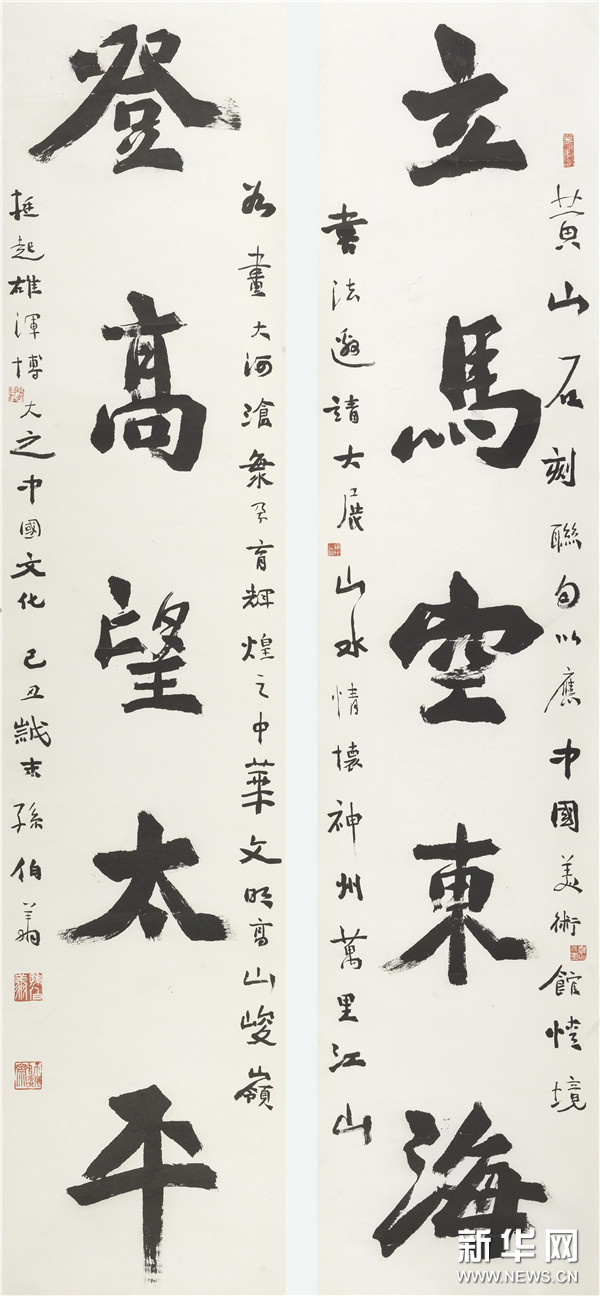 黄山石刻聯句以應中國美術館情境
立馬空東海
書法邀請大展山水情懷神州萬里江山
如畫大河滄桑孕育輝煌之中華文明高山峻嶺
登高望太平
挺起雄渾博大之中國文化己丑歲末孫伯翔
新华网
WWW.NEWS.CN